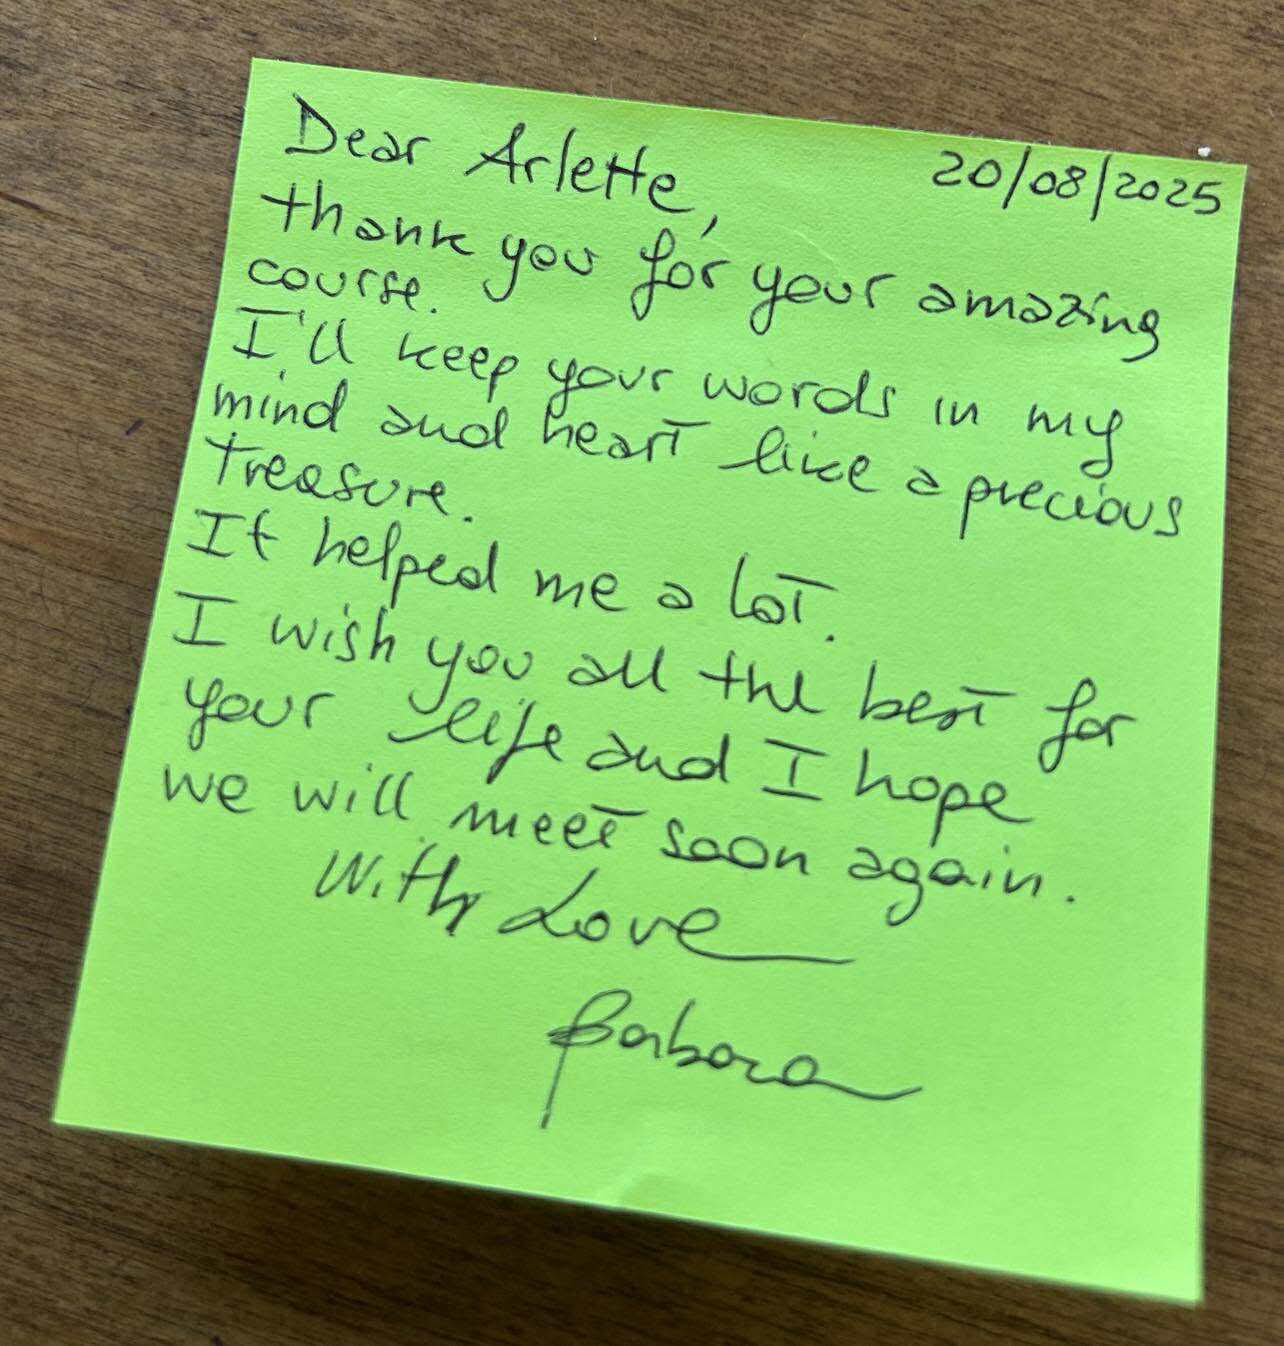 Dear Arlette, 20/08/2025
thank you for your amazing
course.
I'll keep your words in my
mind and heart like a precious
treasure.
It helped me a lot.
I wish you all the best for
your life and I hope
we will meet soon again.
With Love
Barbara